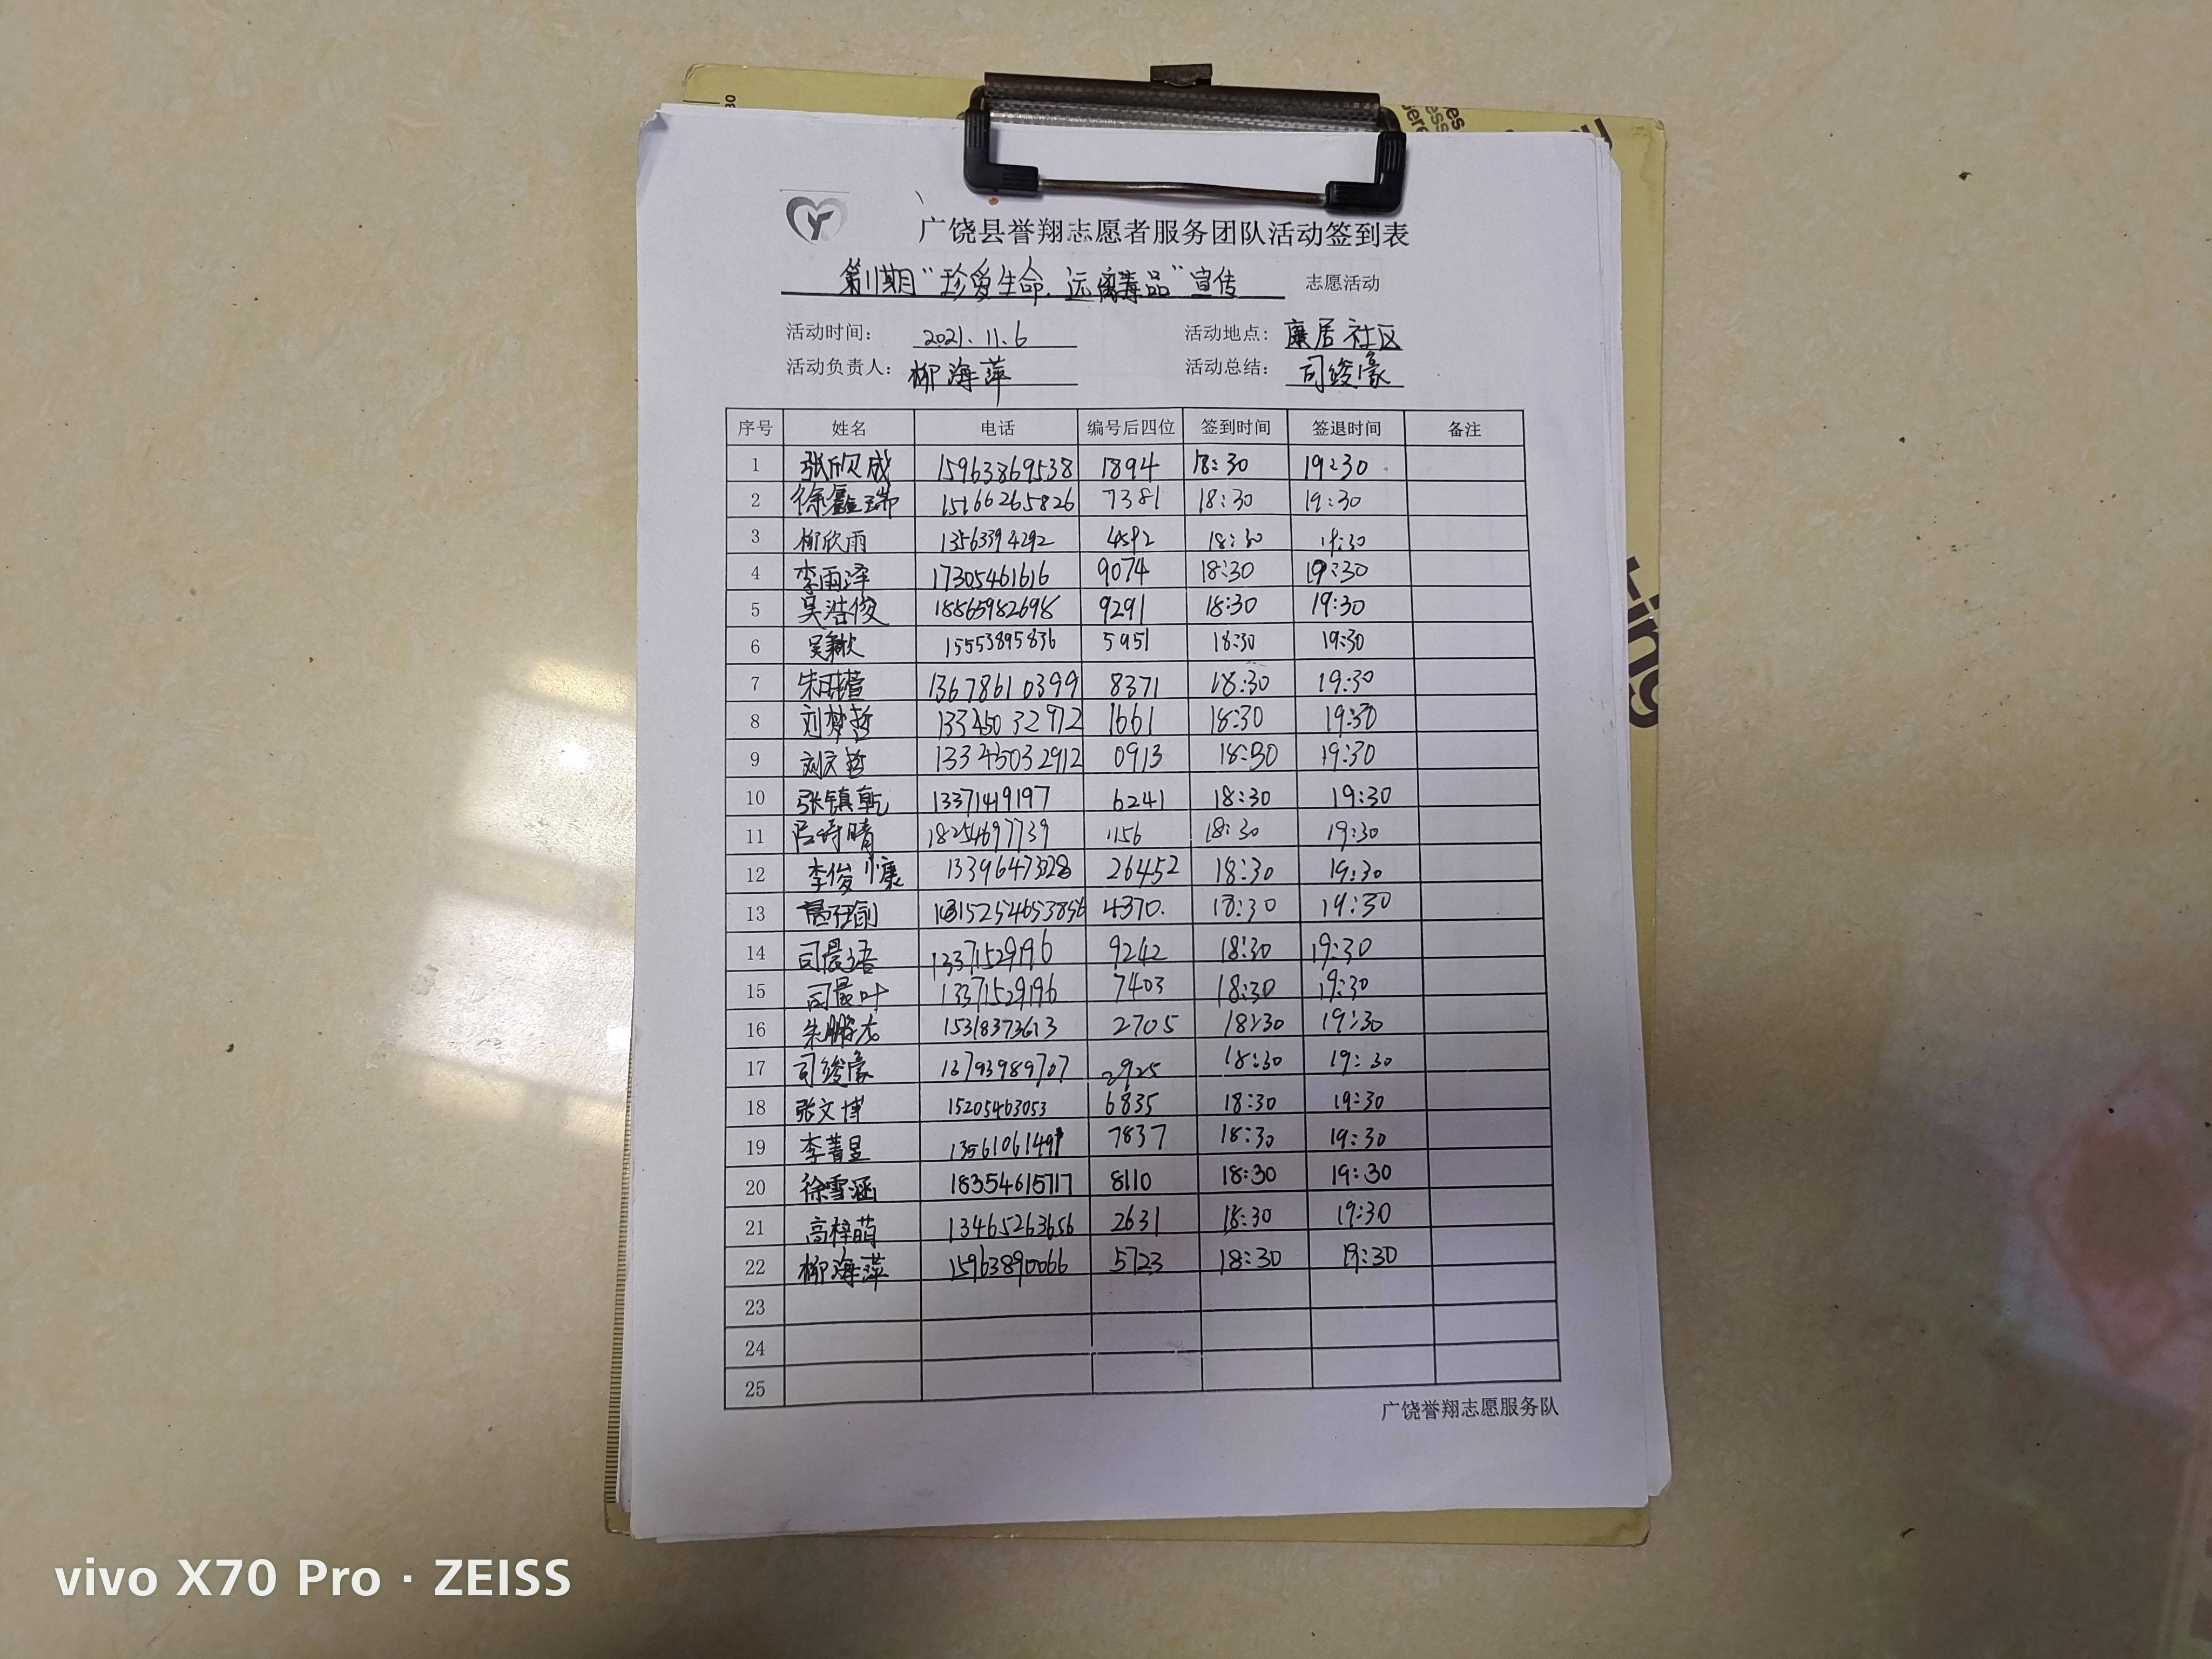 广饶县誉翔志愿者服务团队活动签到表
第11期“珍爱生命.远离毒品”宣传 志愿活动
活动时间: 2021.11.6 活动地点: 廉居社区
活动负责人: 柳海萍 活动总结: 司竣豪
序号 姓名 电话 编号后四位 签到时间 签退时间 备注
1 张欣成 15963869538 1894 18:30 19:30
2 徐鑫瑞 15166265826 7381 18:30 19:30
3 柳欣雨 13563394292 4592 18:30 19:30
4 李雨泽 17305461616 9074 18:30 19:30
5 吴浩俊 18865982698 9291 18:30 19:30
6 15553895836 5951 18:30 19:30
7 13678610399 8371 18:30 19:30
8 刘梦哲 1661 18:30 19:30
9 刘文哲 0913 18:30 19:30
10 张镇乾 13371419197 6241 18:30 19:30
11 吕诗晴 18254697739 1156 18:30 19:30
12 李俊慷 13396473028 26452 18:30 19:30
13 4370. 18:30 19:30
14 司晨语 13371529196 9242 18:30 19:30
15 司晨叶 13371529196 7403 18:30 19:30
16 朱鹏 15318373613 2705 18:30 19:30
17 司竣豪 13793989707 2925 18:30 19:30
18 张文博 15205463053 6835 18:30 19:30
19 李菁昱 7837 18:30 19:30
20 徐雪涵 18354615717 8110 18:30 19:30
21 高梓萌 13465263656 2631 18:30 19:30
22 柳海萍 15963890066 5723 18:30 19:30
23
24
25
广饶誉翔志愿服务队
vivo X70 Pro · ZEISS